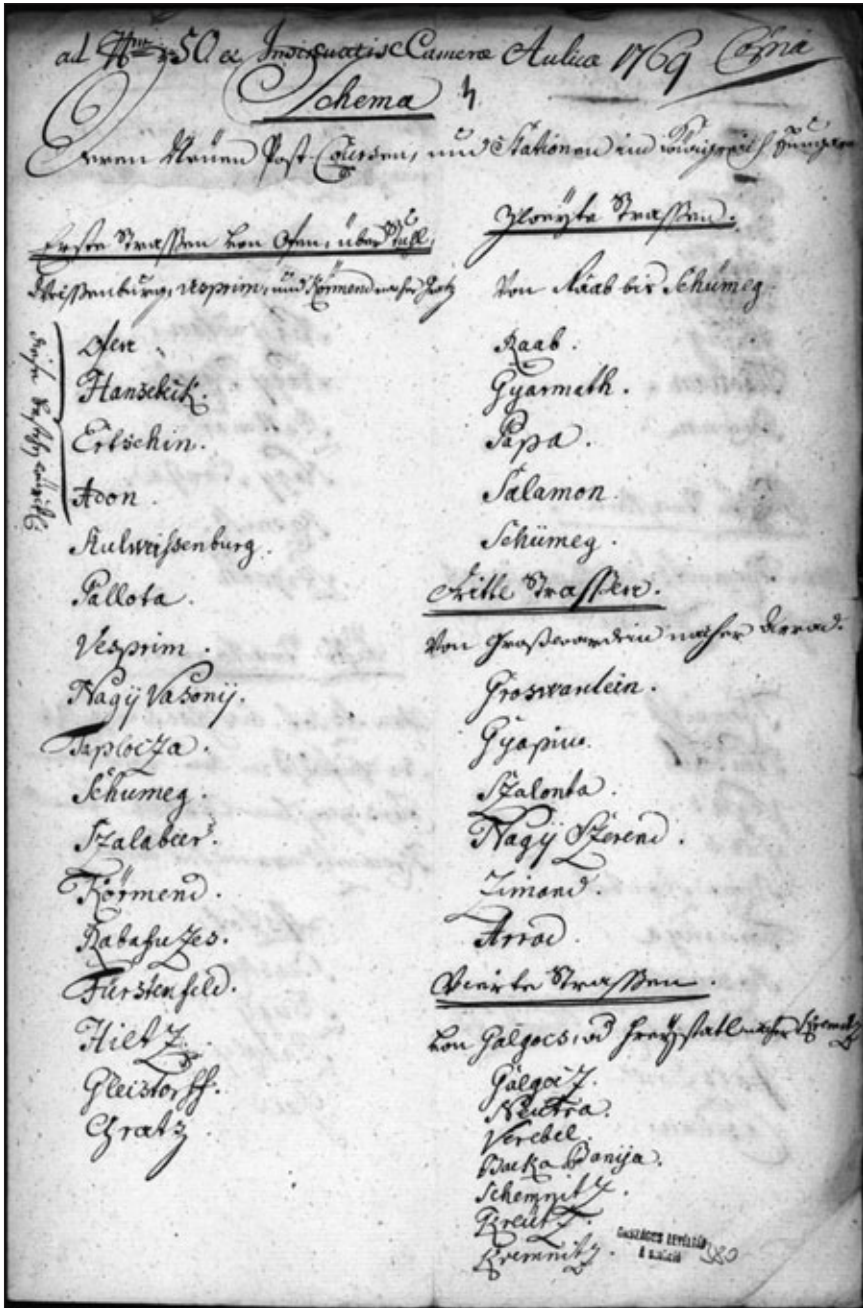 ad 50 ex Insinuatis Cameræ Aulicæ 1769
Schema
Deren Neüen Post-Coursen, und Stationen im Königreich Hungarn
Erste Strassen von Ofen, über Stuhl-
Weissenburg, Vesprim, und Körmend naher Gratz
Ofen
Hansebek.
Ertschin.
Adon.
Stulweissenburg.
Pallota.
Vesprim.
Nagÿ Vasonij.
Taplocza.
Schumeg.
Szalabeer.
Körmend.
Rabafuzes.
Fürstenfeld.
Hiltz.
Gleistorff.
Gratz
Zweÿte Strassen.
Von Raab bis Schümeg.
Raab.
Gÿarmath.
Papa.
Salamon.
Schümeg.
Dritte Strassen.
Von Großwardein naher Arrad.
Groswardein.
Gÿapiu.
Szalonta.
Nagÿ Szerend.
Zimand.
Arrad.
Vierte Strassen.
von Galgocs, od Freÿstatl naher Kremnitz
Galgocz.
Neutra.
Verebel.
Backa Banija.
Schemnitz.
Kreütz.
Kremnitz.
ORSZÁGOS LEVÉLTÁR